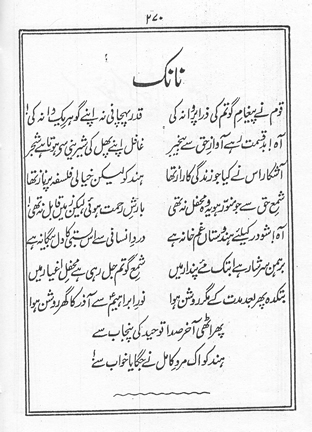 ۲۷۰
نانک
قوم نے پیغام گوتم کی ذرا پروا نہ کی قدر پہچانی نہ اپنے گوہر یک دانہ کی!
آہ! بدقسمت رہے آوازِ حق سے بیخبر غافل اپنے پھل کی شیرینی سے ہوتا ہے شجر
آشکار اس نے کیا جو زندگی کا راز تھا ہند کو لیکن خیالی فلسفہ پر ناز تھا
شمعِ حق سے جو منور ہو یہ وہ محفل نہ تھی بارشِ رحمت ہوئی لیکن زمیں قابل نہ تھی
آہ! شودر کیلئے ہندوستاں غم خانہ ہے دردِ انسانی سے اس بستی کا دل بیگانہ ہے
برہمن سرشار ہے ابتک مئے پندار میں شمعِ گوتم جل رہی ہے محفلِ اغیار میں
بتکدہ پھر بعد مدت کے مگر روشن ہوا نورِ ابراہیمؑ سے آذر کا گھر روشن ہوا
پھر اٹھی آخر صدا توحید کی پنجاب سے
ہند کو اک مردِ کامل نے جگایا خواب سے!